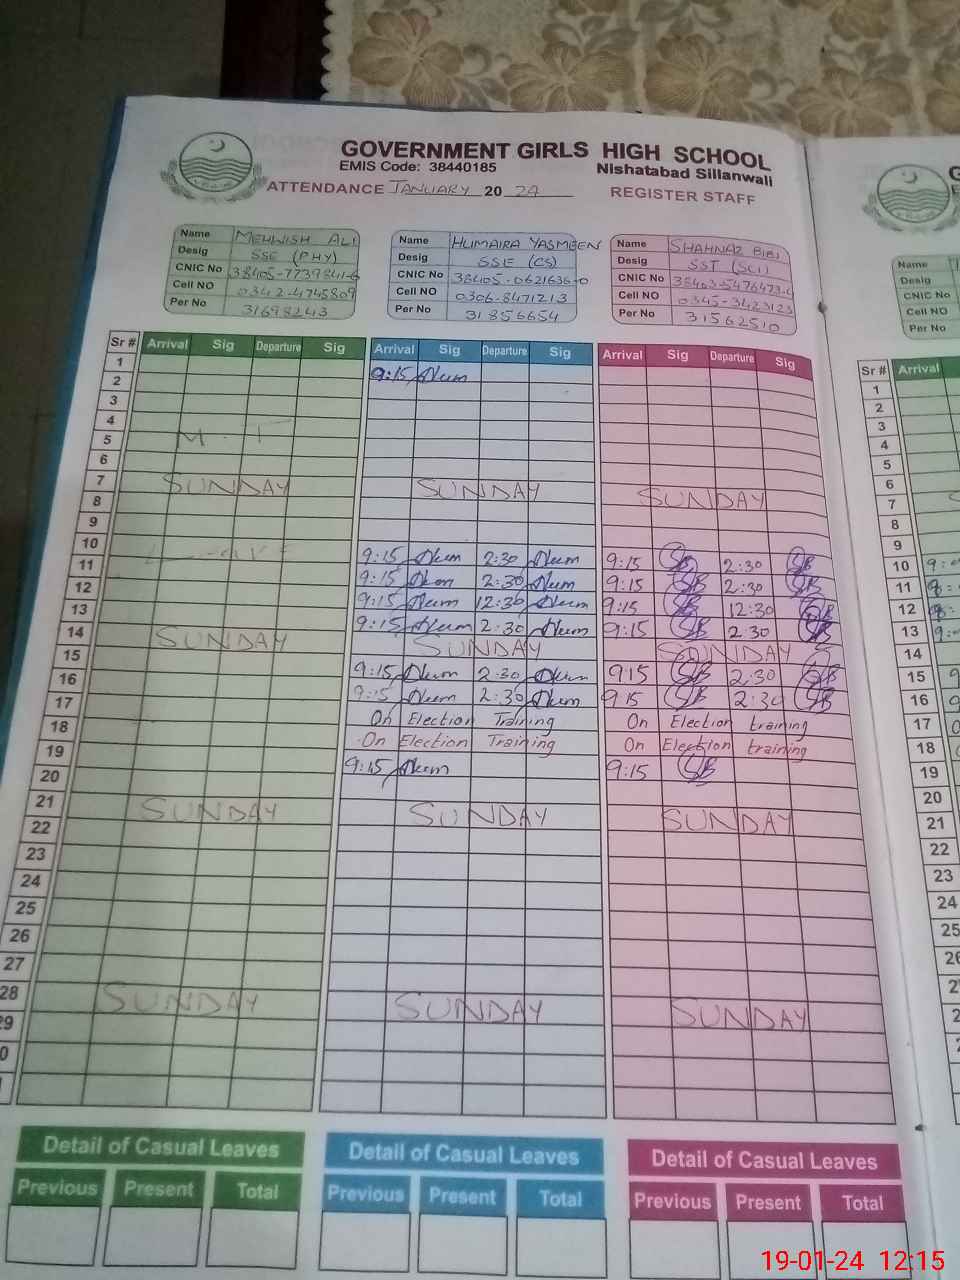 GOVERNMENT GIRLS HIGH SCHOOL
EMIS Code: 38440185 Nishatabad Sillanwali
ATTENDANCE JANUARY 20 24 REGISTER STAFF
Name MEHWISH ALI
Desig SSE (PHY)
CNIC No 38405-7739841-6
Cell NO 0342-4745809
Per No 31698243
Name HUMAIRA YASMEEN
Desig SSE (CS)
CNIC No 38405-0621636-0
Cell NO 0306-8471213
Per No 31856654
Name SHAHNAZ BIBI
Desig SST (SCI)
CNIC No 38403-5476473-6
Cell NO 0345-3423123
Per No 31562510
Name
Desig
CNIC No
Cell NO
Per No
Sr # Arrival Sig Departure Sig Arrival Sig Departure Sig Arrival Sig Departure Sig Sr # Arrival
1 1
2 9:15 2
3 3
4 4
5 M.T 5
6 6
7 SUNDAY SUNDAY SUNDAY 7
8 8
9 9
10 9:15 2:30 9:15 2:30 10
11 9:15 2:30 9:15 2:30 11
12 9:15 12:30 9:15 12:30 12
13 9:15 2:30 9:15 2:30 13
14 SUNDAY SUNDAY SUNDAY 14
15 9:15 2:30 9:15 2:30 15
16 9:15 2:30 9:15 2:30 16
17 On Election Training On Election training 17
18 On Election Training On Election training 18
19 9:15 9:15 19
20 20
21 SUNDAY SUNDAY SUNDAY 21
22 22
23 23
24 24
25 25
26
27
28 SUNDAY SUNDAY SUNDAY
Detail of Casual Leaves Detail of Casual Leaves Detail of Casual Leaves
Previous Present Total Previous Present Total Previous Present Total
19-01-24 12:15